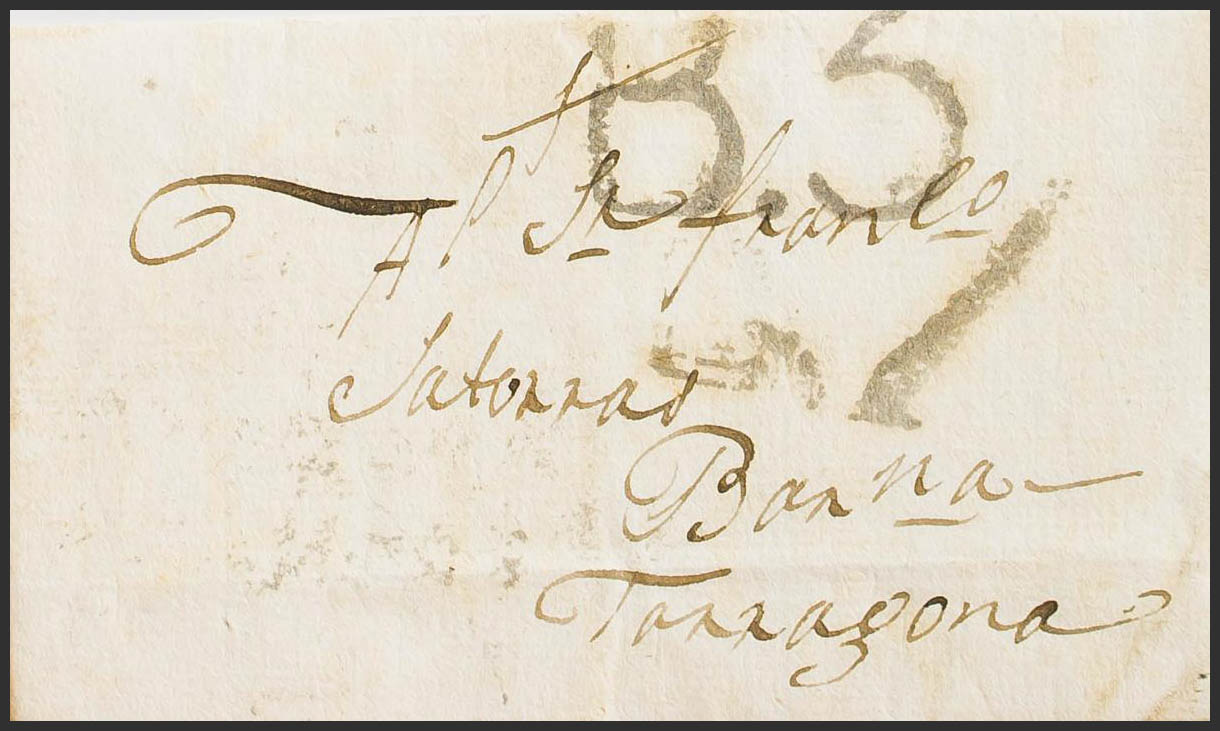 B.S
Al Sr Franco
Satorras
Barna
Tarragona